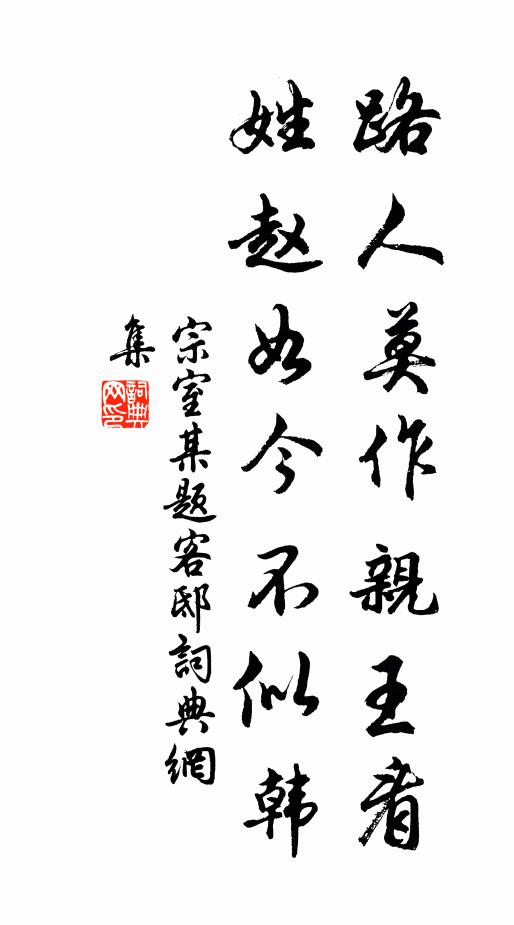 路人莫作親王看
姓赵如今不似韩
宗室某题客邸詞典網
集
詞典网印